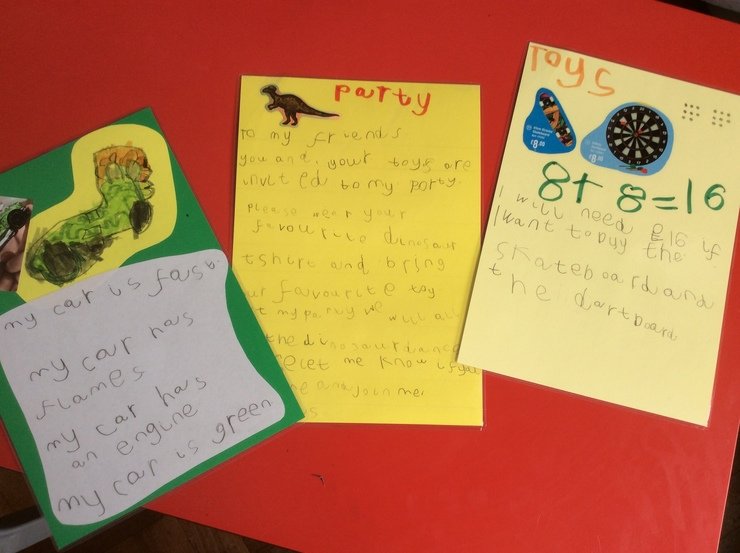 my car is fast.
my car has
flames
my car has
an engine
my car is green
party
To my friends
you and your toys are
invited to my party.
please wear your
favourite dinosaur
tshirt and bring
ur favourite toy
t my party we will all
the dinosaur dance
let me know if you
and join me.
Toys
£8.00
£8.00
8+8=16
I will need £16 if
I want to buy the
skateboard and
the dartboard